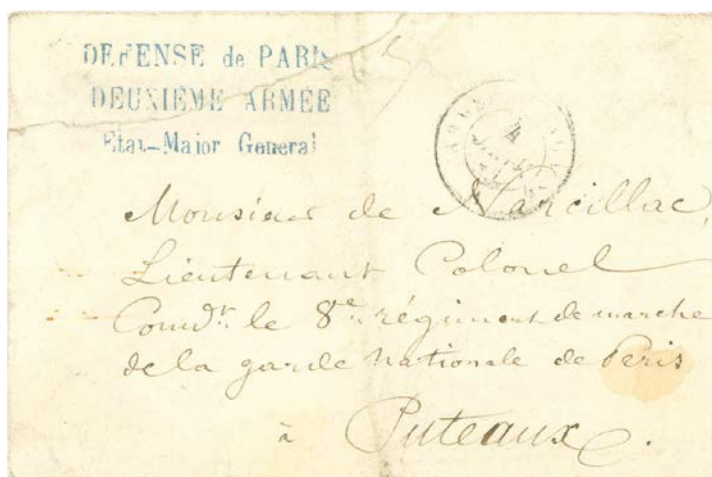 DEFENSE de PARIS
DEUXIEME ARMÉE
Etat-Major General
4
Monsieur de Narcillac,
Lieutenant Colonel
Comdt. le 8e régiment de marche
de la garde nationale de Paris
à Puteaux.